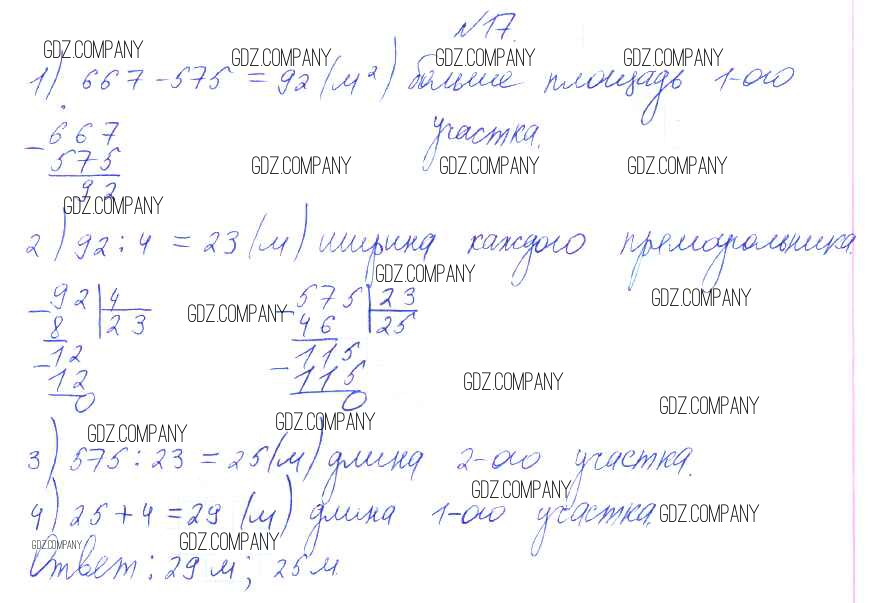 №17.
GDZ.COMPANY GDZ.COMPANY GDZ.COMPANY GDZ.COMPANY
1) 667 - 575 = 92 (м²) больше площадь 1-ого
участка.
- 667
575
92
GDZ.COMPANY GDZ.COMPANY GDZ.COMPANY
GDZ.COMPANY
2) 92 : 4 = 23 (м) ширина каждого прямоугольника.
GDZ.COMPANY
- 92 | 4 - 575 | 23
8 | 23 46 | 25
- 12 - 115
12 115
0 0
GDZ.COMPANY GDZ.COMPANY
GDZ.COMPANY GDZ.COMPANY
GDZ.COMPANY GDZ.COMPANY
3) 575 : 23 = 25 (м) длина 2-ого участка.
GDZ.COMPANY
4) 25 + 4 = 29 (м) длина 1-ого участка.
GDZ.COMPANY
GDZ.COMPANY GDZ.COMPANY
Ответ: 29 м; 25 м.